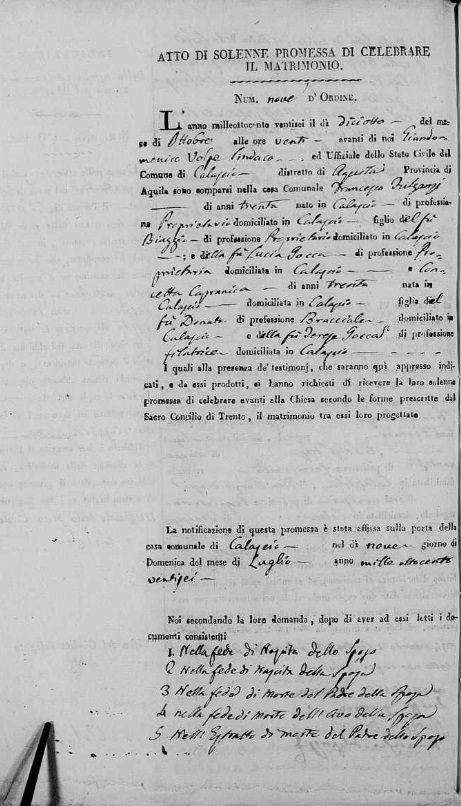 ATTO DI SOLENNE PROMESSA DI CELEBRARE
IL MATRIMONIO.
NUM. nove D'ORDINE.
L'anno milleottocento ventisei il dì diciotto del me-
se di Ottobre alle ore venti avanti di noi Giando-
menico Volpe Sindaco ed Uffiziale dello Stato Civile del
Comune di Calascio distretto di Aquila Provincia di
Aquila sono comparsi nella casa Comunale Francesco
di anni trenta nato in Calascio di professio-
ne Proprietario domiciliato in Calascio figlio del fù
Biaggio di professione Proprietario domiciliato in Calascio
; e della fù Lucia di professione Pro-
prietaria domiciliata in Calascio e Con-
cetta Capranica di anni trenta nata in
Calascio domiciliata in Calascio figlia del
fù Donato di professione Bracciale domiciliato in
Calascio e della fù di professione
filatrice domiciliata in Calascio
I quali alla presenza de' testimonj, che saranno quì appresso indi-
cati, e da essi prodotti, ci hanno richiesti di ricevere la loro solenne
promessa di celebrare avanti alla Chiesa secondo le forme prescritte dal
Sacro Concilio di Trento, il matrimonio tra essi loro progettato
La notificazione di questa promessa è stata affissa sulla porta della
casa comunale di Calascio nel dì nove giorno di
Domenica del mese di Luglio anno mille ottocento
ventisei
Noi secondando la loro domanda, dopo di aver ad essi letti i do-
cumenti consistenti
1. Nella fede di Nascita dello Sposo
2 Nella fede di Nascita della Sposa
3 Nella fede di Morte del Padre della Sposa
4 nella fede di morte dell' Avo della Sposa
5 Nell' Estratto di morte del Padre dello Sposo